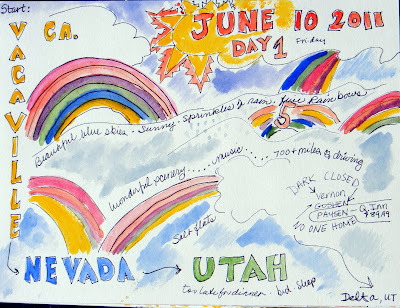 Start:
VACAVILLE
CA.
JUNE 10 2011
DAY 1
Friday
Beautiful blue skies - Sunny - Sprinkles of rain. five Rainbows
5
Wonderful scenery..... music..... 700+ miles of driving
Salt flats
DARK CLOSED
Vernon
GOSHEN
PAYSEN
Q. Inn
$89.99
NO ONE HOME
NEVADA
UTAH
too late for dinner - bed sleep
Delta, UT